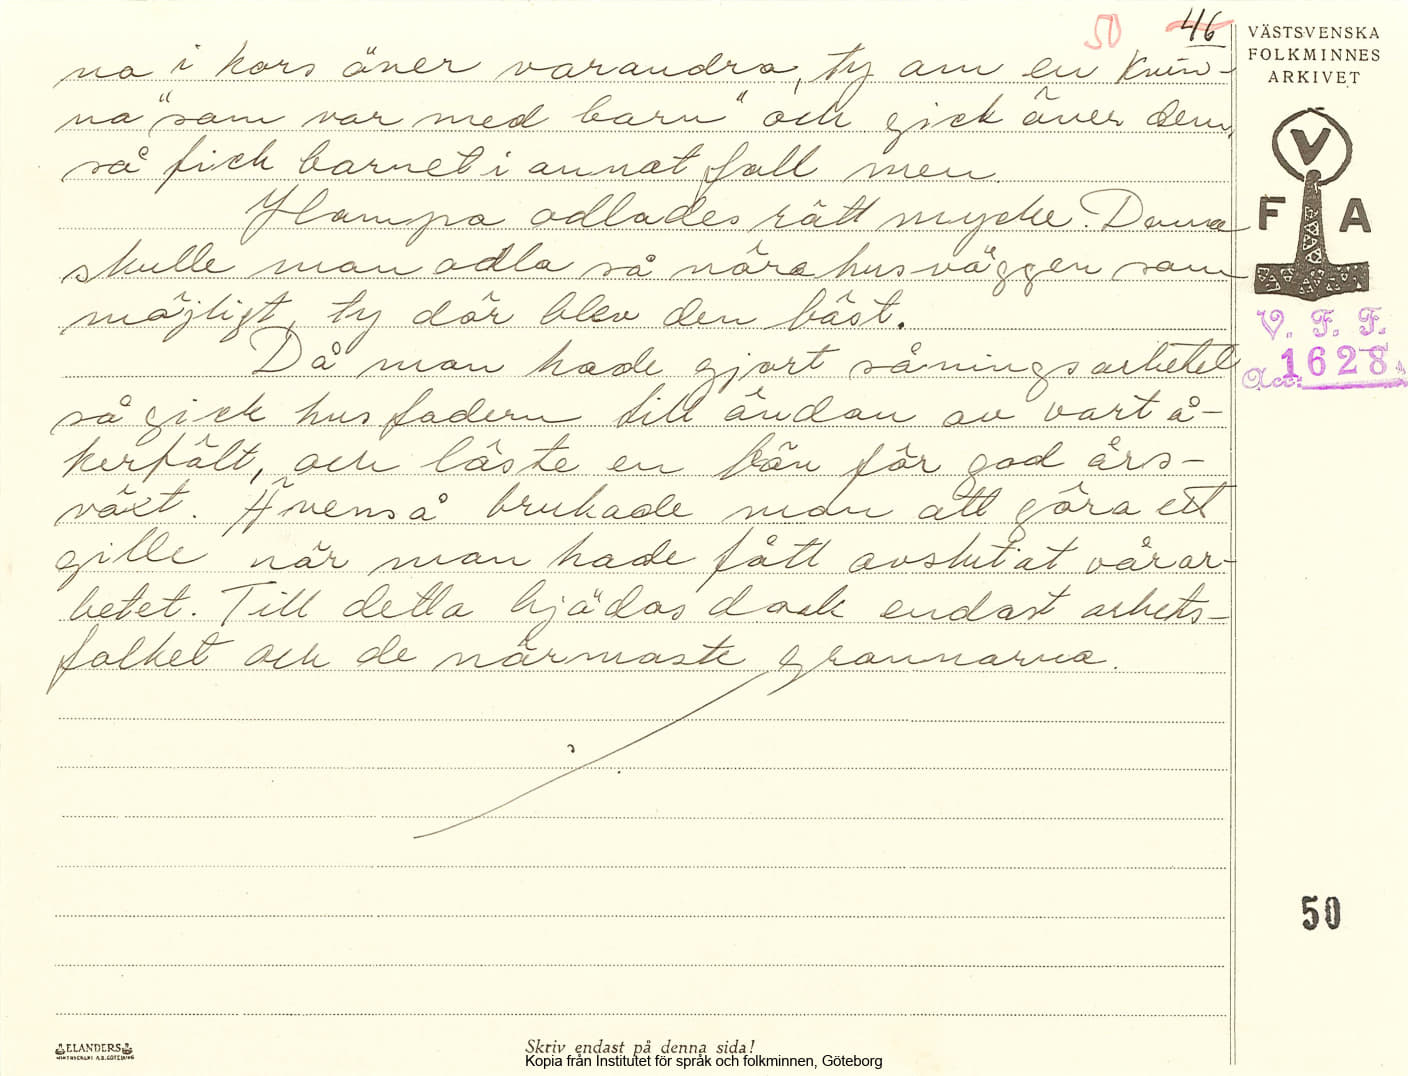 50 46
na i kors över varandra, ty om en kvin-
na "som var med barn" och gick över dem,
så fick barnet i annat fall men.
Hampa odlades rätt mycke. Denna
skulle man odla så nära husväggen som
möjligt, ty där blev den bäst.
Då man hade gjort såningsarbetet
så gick husfadern till ändan av vart å-
kerfält, och läste en bön för god års-
växt. Ävenså brukade man att göra ett
gille när man hade fått avslutat vårar-
betet. Till detta bjödos dock endast arbets-
folket och de närmaste grannarna.
VÄSTSVENSKA
FOLKMINNES
ARKIVET
V
F A
V. F. F.
Acc. 1628
50
ELANDERS
Skriv endast på denna sida!
Kopia från Institutet för språk och folkminnen, Göteborg